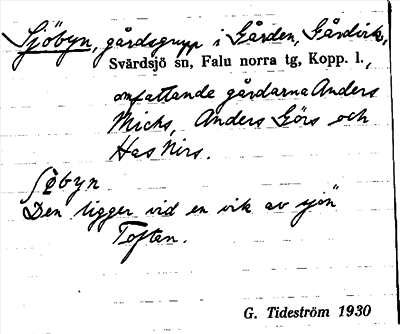 Sjöbyn, gårdsgrupp i Gården, Gårdvik,
Svärdsjö sn, Falu norra tg, Kopp. l.,
omfattande gårdarna Anders
Micks, Anders Görs och
Has Nirs.
Den ligger vid en vik av sjön
Toftan.
G. Tideström 1930